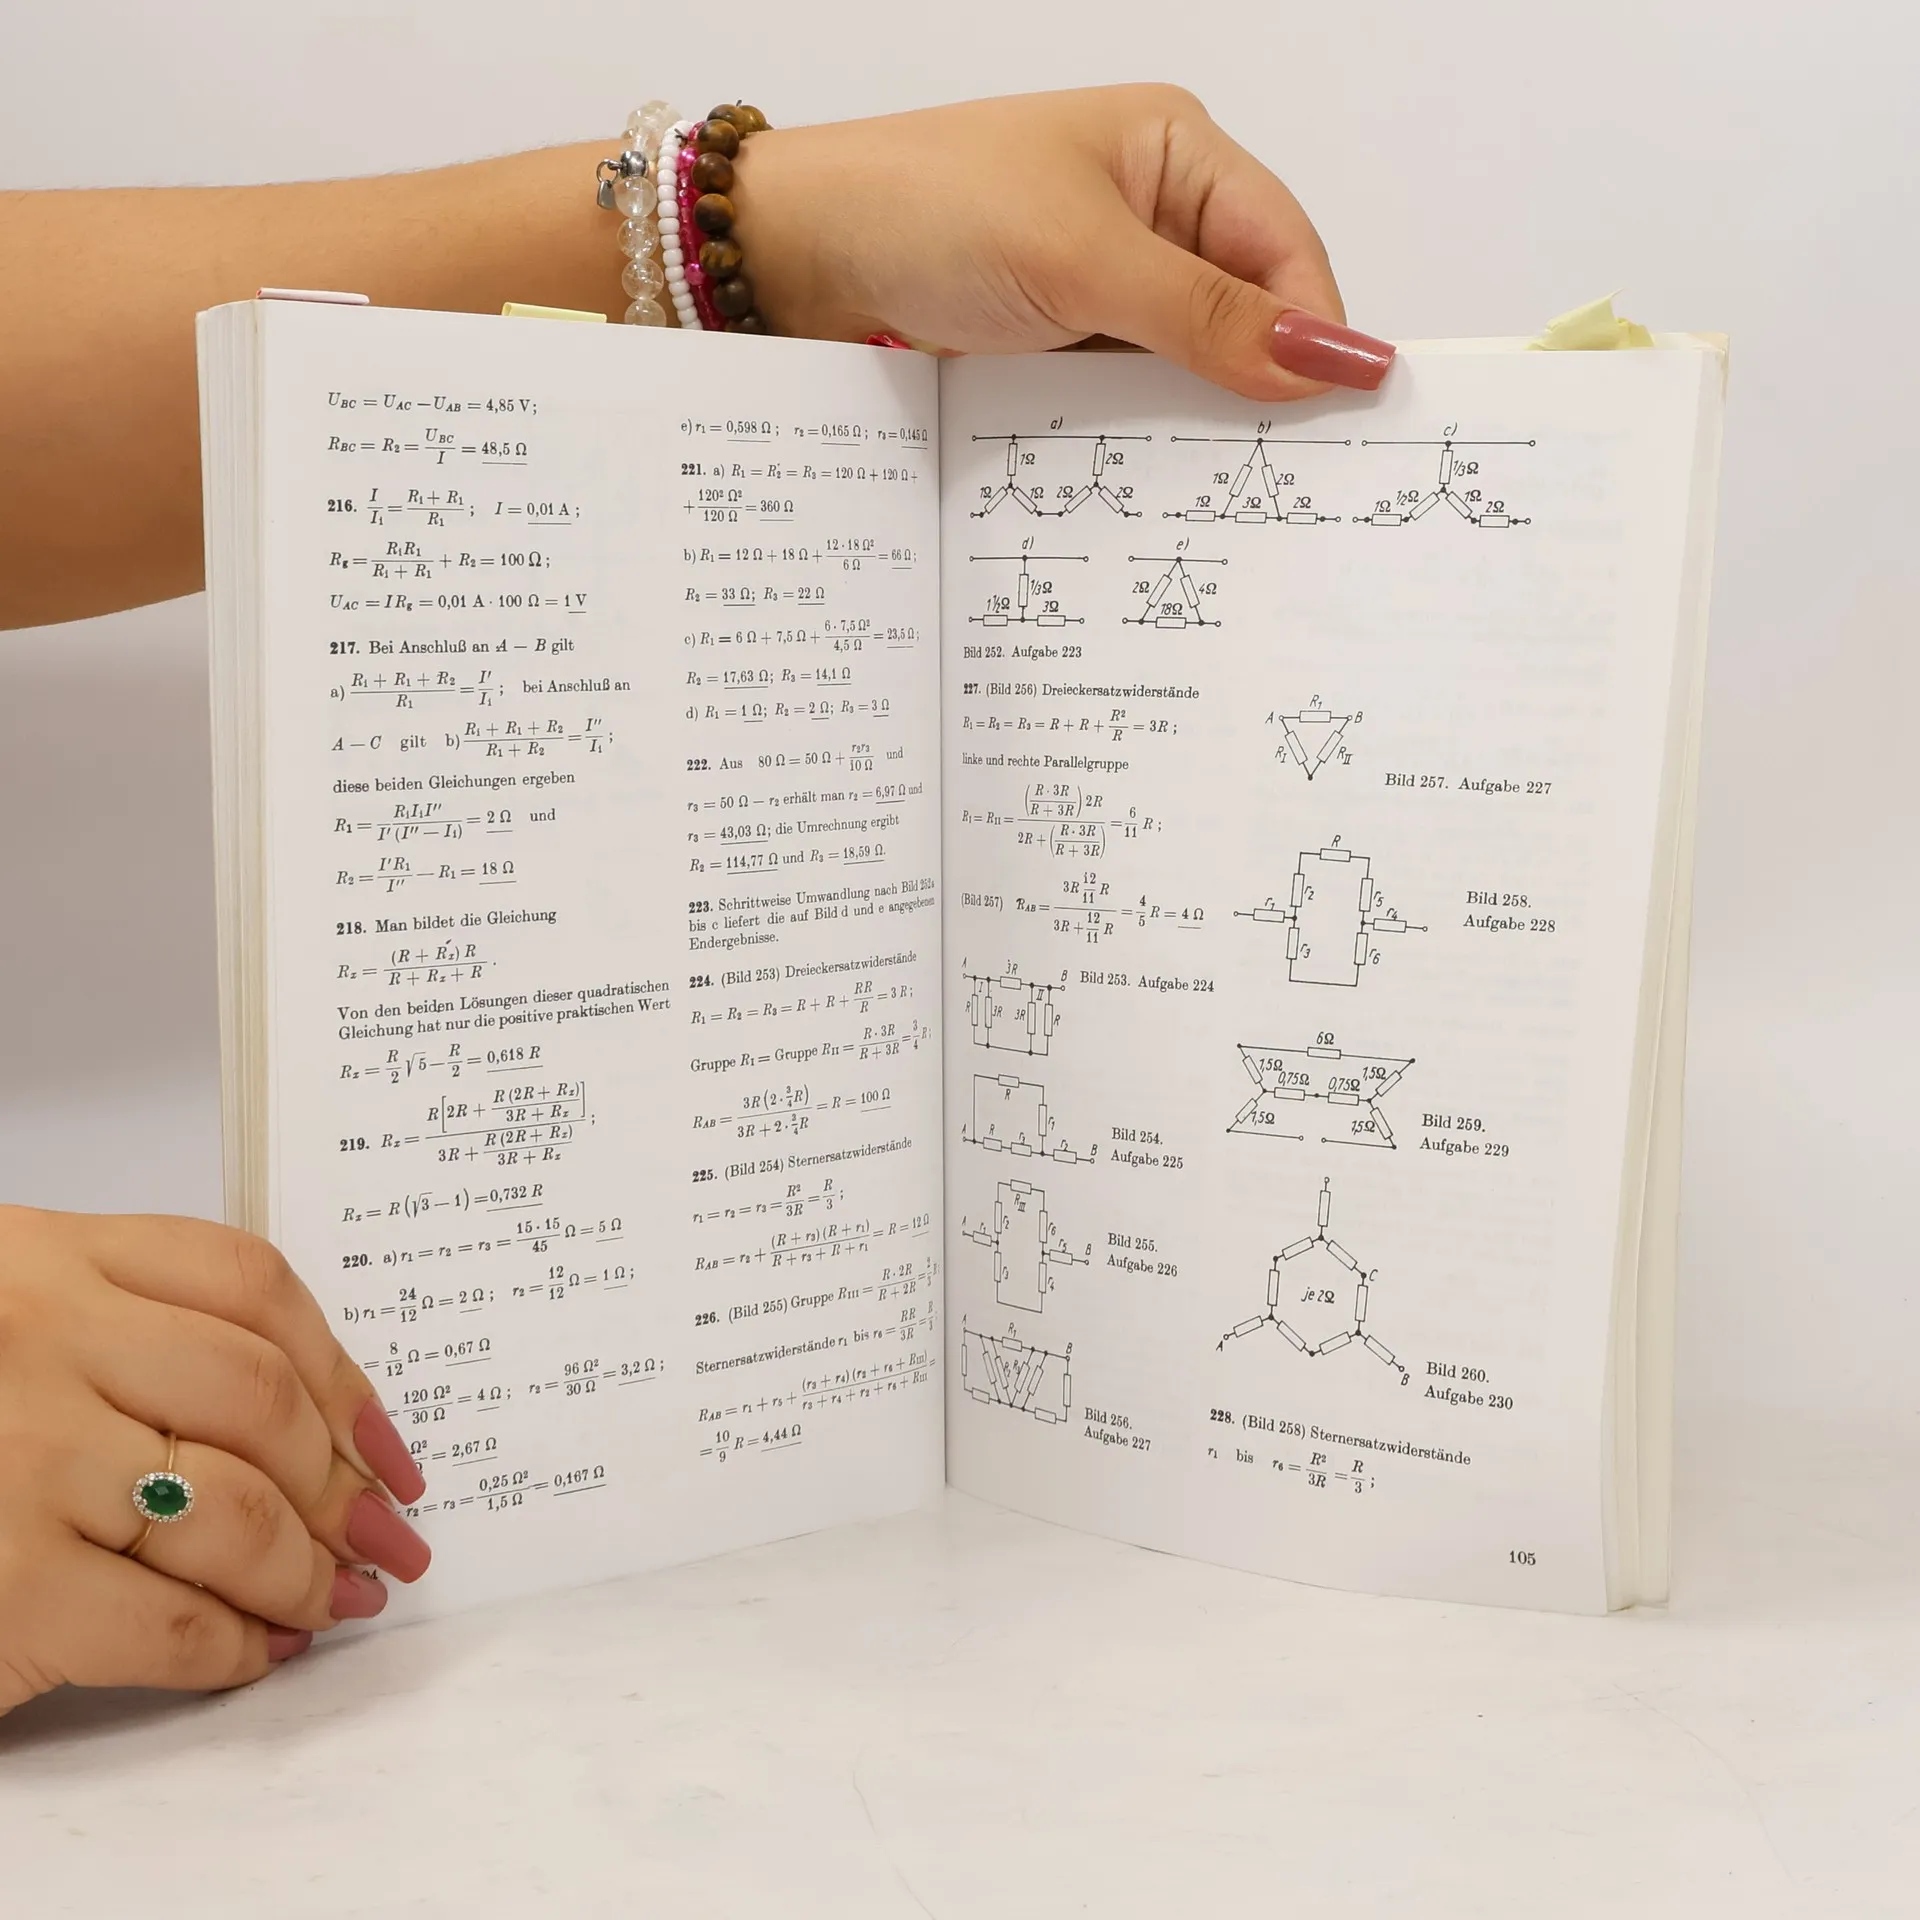 U_BC = U_AC − U_AB = 4,85 V;
R_BC = R₂ = U_BC / I = 48,5 Ω
216. I / I₁ = (R₁ + R₁) / R₁ ; I = 0,01 A ;
R_g = R₁R₁ / (R₁ + R₁) + R₂ = 100 Ω ;
U_AC = I R_g = 0,01 A · 100 Ω = 1 V
217. Bei Anschluß an A − B gilt
a) (R₁ + R₁ + R₂) / R₁ = I′ / I₁ ; bei Anschluß an
A − C gilt b) (R₁ + R₁ + R₂) / (R₁ + R₂) = I″ / I₁ ;
diese beiden Gleichungen ergeben
R₁ = R₁I₁I″ / I′(I″ − I₁) = 2 Ω und
R₂ = I′R₁ / I″ − R₁ = 18 Ω
218. Man bildet die Gleichung
R_x = (R + R_x) R / (R + R_x + R) .
Von den beiden Lösungen dieser quadratischen
Gleichung hat nur die positive praktischen Wert
R_x = R/2 √5 − R/2 = 0,618 R
219. R_x = R[2R + R(2R + R_x) / (3R + R_x)] / (3R + R(2R + R_x) / (3R + R_x)) ;
R_x = R(√3 − 1) = 0,732 R
220. a) r₁ = r₂ = r₃ = 15 · 15 / 45 Ω = 5 Ω
b) r₁ = 24/12 Ω = 2 Ω ; r₂ = 12/12 Ω = 1 Ω ;
= 8/12 Ω = 0,67 Ω
= 120 Ω² / 30 Ω = 4 Ω ; r₂ = 96 Ω² / 30 Ω = 3,2 Ω ;
Ω² / Ω = 2,67 Ω
r₂ = r₃ = 0,25 Ω² / 1,5 Ω = 0,167 Ω
e) r₁ = 0,598 Ω ; r₂ = 0,165 Ω ; r₃ = 0,145 Ω
221. a) R₁ = R₂ = R₃ = 120 Ω + 120 Ω +
+ 120² Ω² / 120 Ω = 360 Ω
b) R₁ = 12 Ω + 18 Ω + 12 · 18 Ω² / 6 Ω = 66 Ω ;
R₂ = 33 Ω; R₃ = 22 Ω
c) R₁ = 6 Ω + 7,5 Ω + 6 · 7,5 Ω² / 4,5 Ω = 23,5 Ω ;
R₂ = 17,63 Ω; R₃ = 14,1 Ω
d) R₁ = 1 Ω; R₂ = 2 Ω; R₃ = 3 Ω
222. Aus 80 Ω = 50 Ω + r₂r₃ / 10 Ω und
r₃ = 50 Ω − r₂ erhält man r₂ = 6,97 Ω und
r₃ = 43,03 Ω; die Umrechnung ergibt
R₂ = 114,77 Ω und R₃ = 18,59 Ω.
223. Schrittweise Umwandlung nach Bild 252a
bis c liefert die auf Bild d und e angegebenen
Endergebnisse.
224. (Bild 253) Dreieckersatzwiderstände
R₁ = R₂ = R₃ = R + R + RR / R = 3 R ;
Gruppe R_I = Gruppe R_II = R · 3R / (R + 3R) = 3/4 R ;
R_AB = 3R (2 · 3/4 R) / (3R + 2 · 3/4 R) = R = 100 Ω
225. (Bild 254) Sternersatzwiderstände
r₁ = r₂ = r₃ = R² / 3R = R / 3 ;
R_AB = r₂ + (R + r₃) (R + r₁) / (R + r₃ + R + r₁) = R = 12 Ω
226. (Bild 255) Gruppe R_III = R · 2R / (R + 2R) = 2/3 R
Sternersatzwiderstände r₁ bis r₆ = RR / 3R = R / 3
R_AB = r₁ + r₅ + (r₃ + r₄) (r₂ + r₆ + R_III) / (r₃ + r₄ + r₂ + r₆ + R_III) =
= 10/9 R = 4,44 Ω
a) b) c)
1Ω 2Ω 1Ω 1Ω 2Ω 2Ω
1Ω 2Ω 1Ω 3Ω 2Ω
1/3Ω 1Ω 1/2Ω 1Ω 2Ω
d) e)
1/3Ω 1½Ω 3Ω
2Ω 4Ω 18Ω
Bild 252. Aufgabe 223
227. (Bild 256) Dreieckersatzwiderstände
R₁ = R₂ = R₃ = R + R + R² / R = 3R ;
linke und rechte Parallelgruppe
R_I = R_II = (R · 3R / (R + 3R)) 2R / (2R + (R · 3R / (R + 3R))) = 6/11 R ;
(Bild 257) R_AB = 3R 12/11 R / (3R + 12/11 R) = 4/5 R = 4 Ω
A 3R B
I II
R 3R 3R R
Bild 253. Aufgabe 224
R
r₁
A R r₃ r₂ B
Bild 254.
Aufgabe 225
R_III
r₂ r₆
A r₁ r₅ B
r₃ r₄
Bild 255.
Aufgabe 226
A R₁ B
R₂ R₃
Bild 256.
Aufgabe 227
R₁
A B
R_I R_II
Bild 257. Aufgabe 227
R
r₂ r₅
r₁ r₄
r₃ r₆
Bild 258.
Aufgabe 228
6Ω
1,5Ω 1,5Ω
0,75Ω 0,75Ω
1,5Ω 1,5Ω
Bild 259.
Aufgabe 229
C
je 2Ω
A
B
Bild 260.
Aufgabe 230
228. (Bild 258) Sternersatzwiderstände
r₁ bis r₆ = R² / 3R = R / 3 ;
105